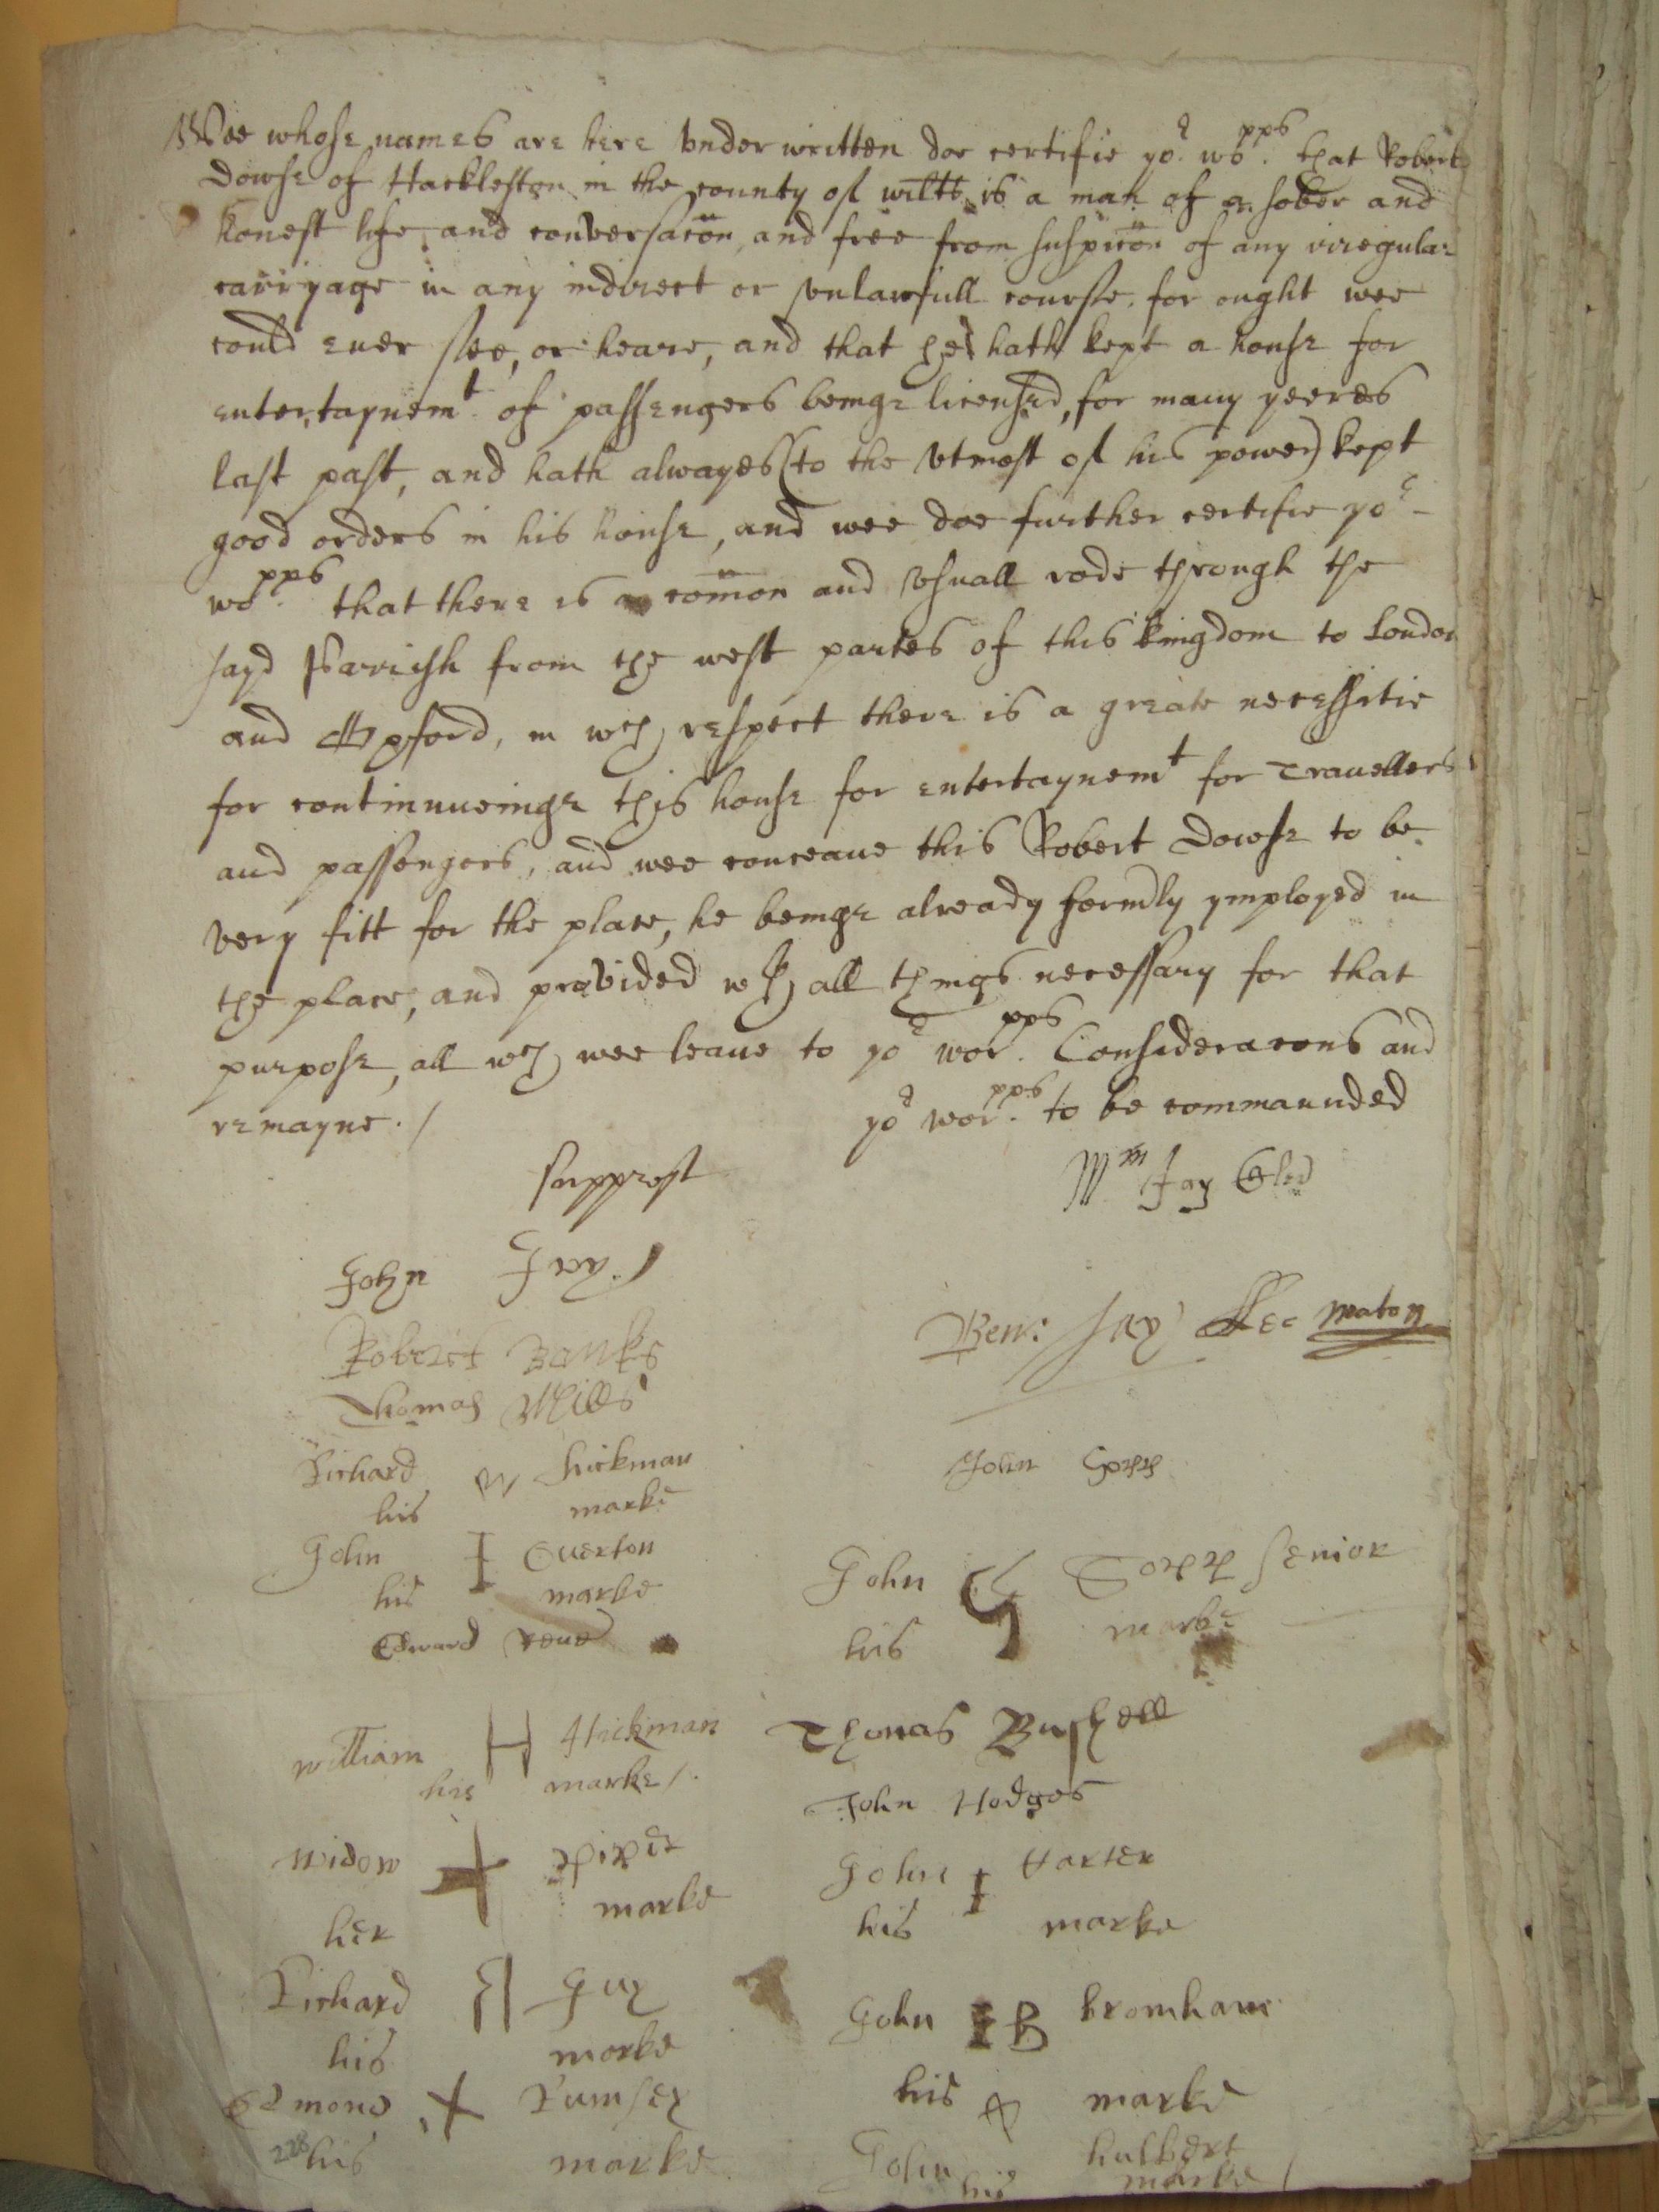 Wee whose names are here vnder written doe certifie yor. wopps. that Robert
Dowse of Hackleston in the county of wiltes is a man of a sober and
honest life and conversacon, and free from suspicon of any irregular
carryage in any indirect or vnlawfull course, for ought wee
could euer see, or heare, and that he hath kept a house for
entertaynemt. of passengers beinge licensed, for many yeeres
last past, and hath alwayes (to the vtmost of his power) kept
good orders in his house, and wee doe further certifie yor
wopps. that there is a comon and vsuall rode through the
sayd Parrish from the west partes of this kingdom to London
and Oxford, in wch respect there is a greate necessitie
for continnueinge this house for entertaynemt for Trauellers
and passengers, and wee conceaue this Robert Dowse to be
very fitt for the place, he beinge already formrly ymployed in
the place, and provided wth all things necessary for that
purpose, all wch wee leaue to yor worpps. Consideracons and
remayne ./ yor worpps. to be commaunded
supprest Wm Jay
John Jay
Ben: Jay Maton
Robert Banks
Thomas Mills
Richard hickman
his marke
John
John I Euerton
his marke
John senior
his marke
Edward
William H Hickman
his marke /.
Thomas Bushell
John Hodges
Widow + Piper
her marke
John I Harter
his marke
Richard Guy
his marke
John I B bromham
his marke
Edmond + Rumsey
his marke
John hulbert
his marke /
228